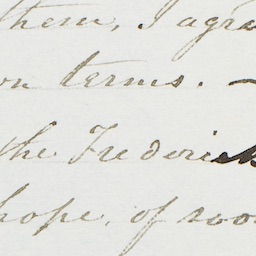 them, I agra
on terms. —
the Frederick
hope, of soo